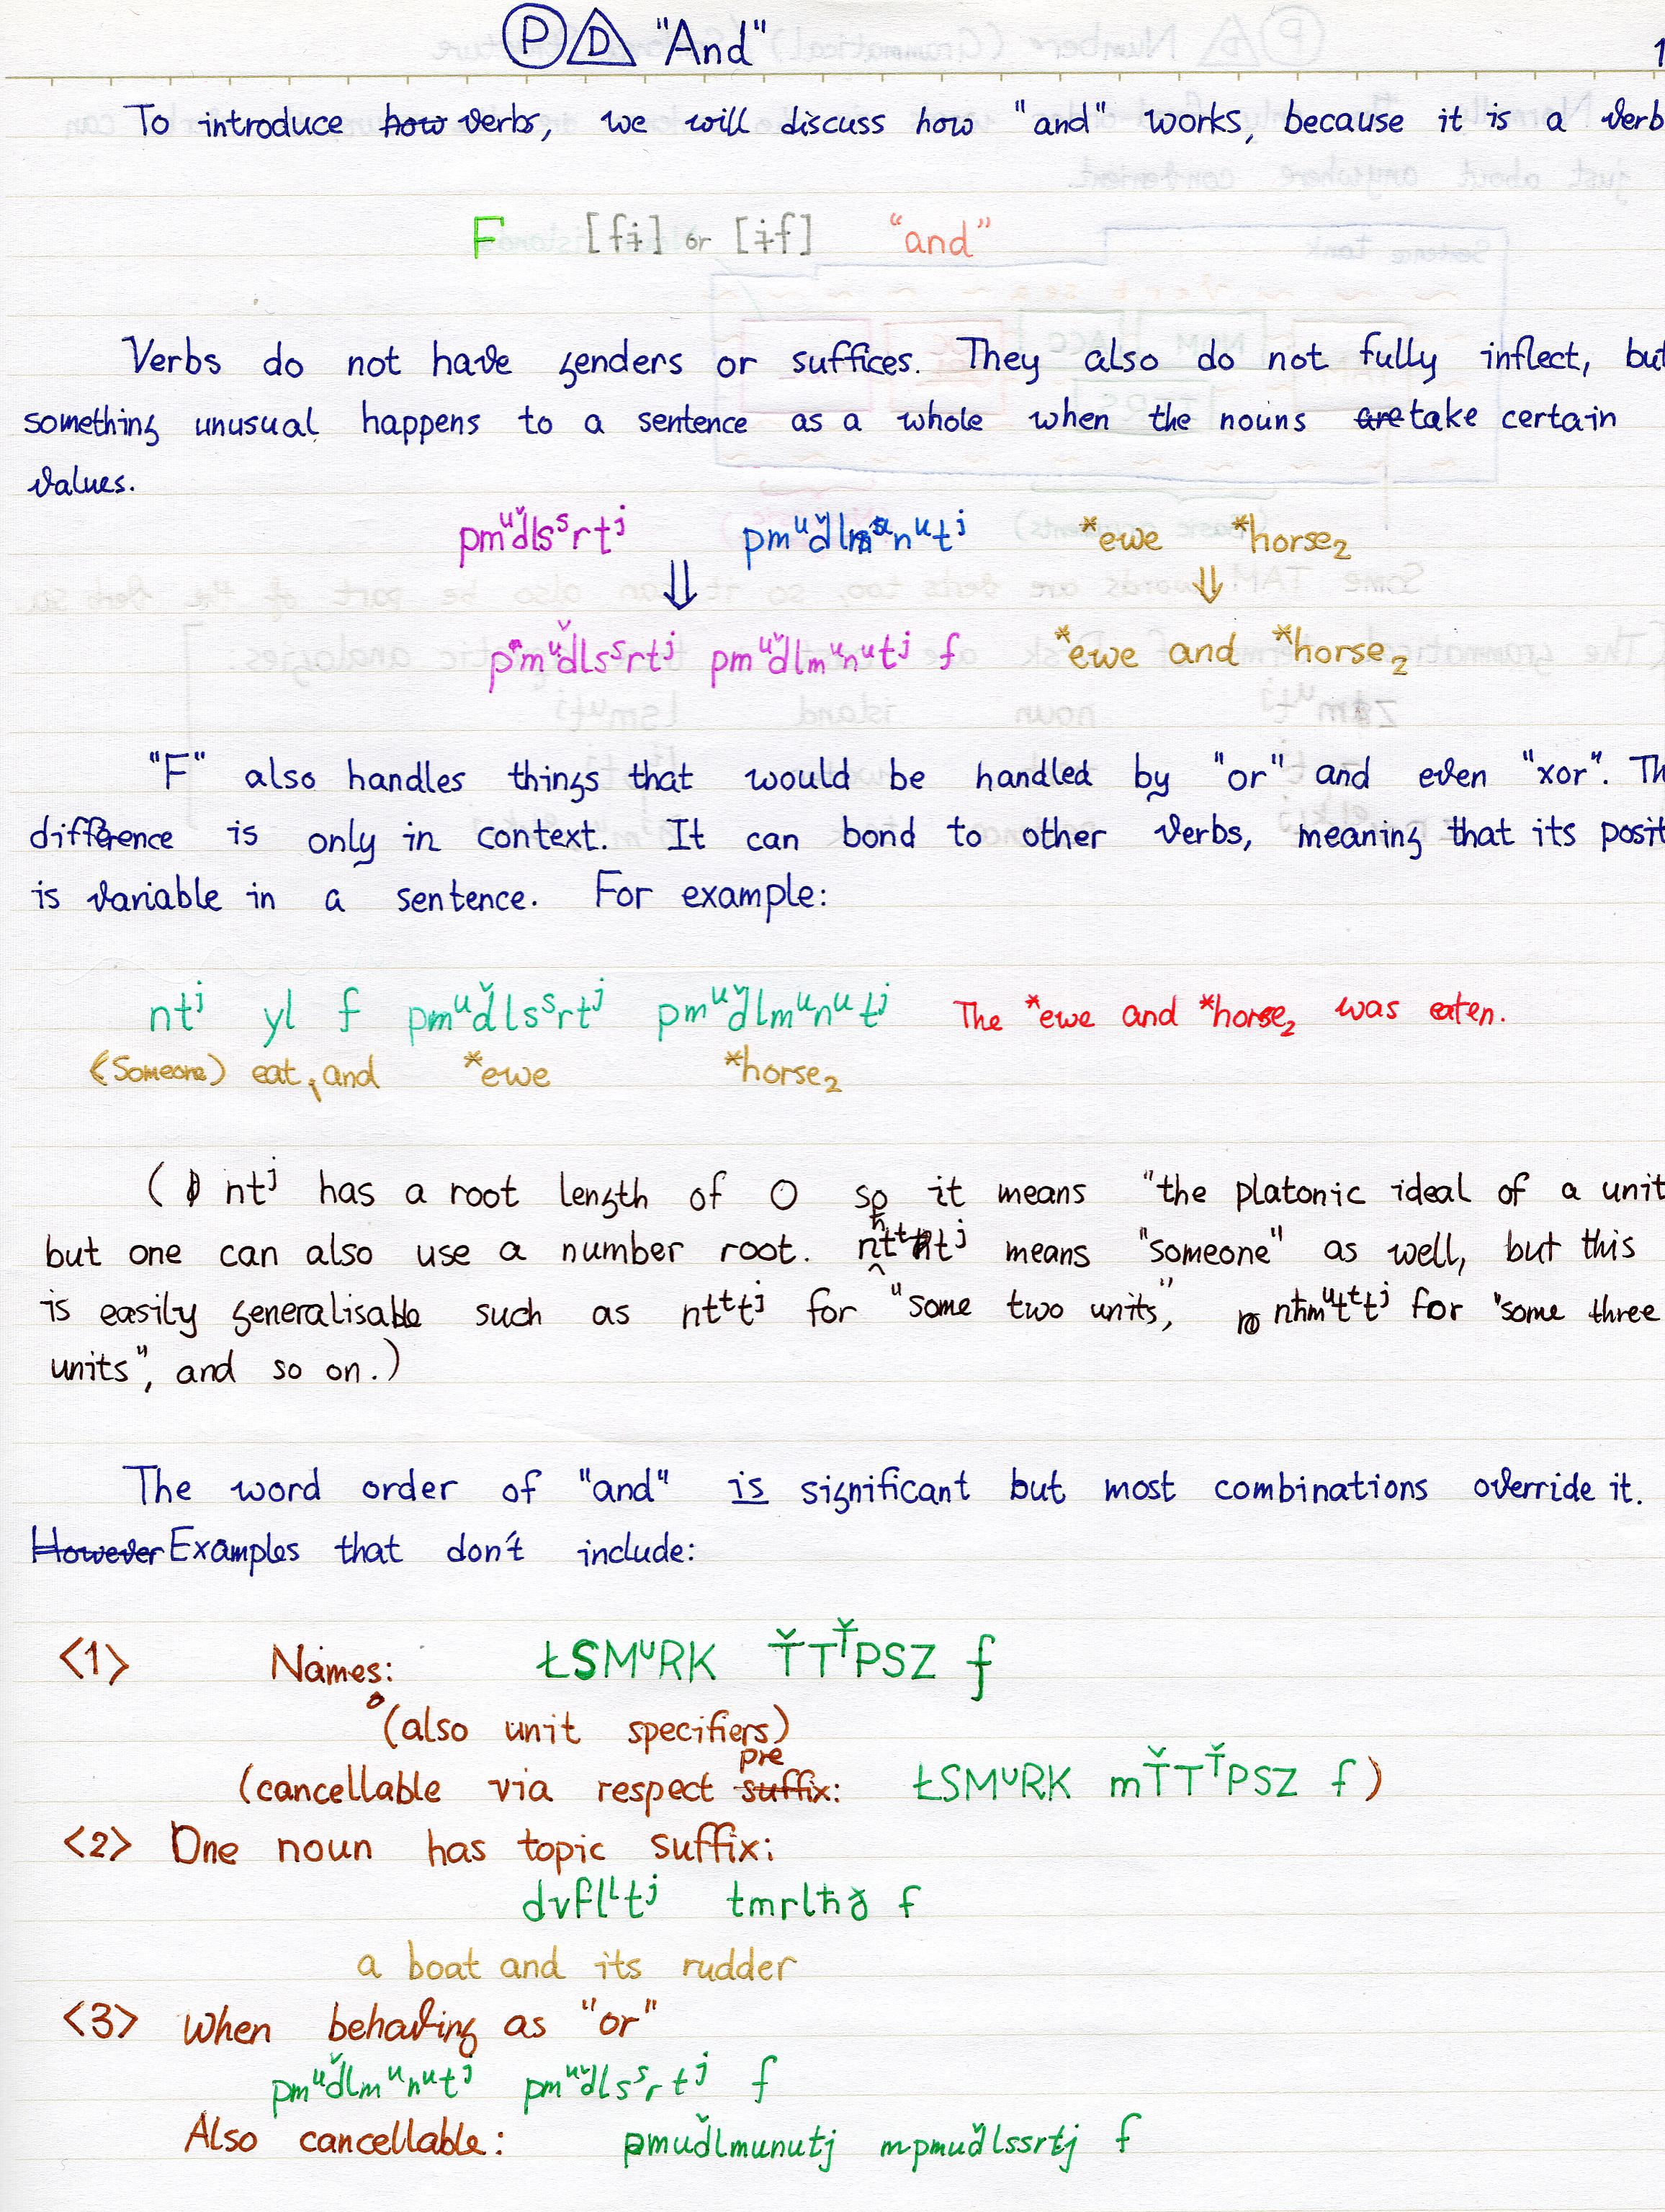 P D "And" 1
To introduce how verbs, we will discuss how "and" works, because it is a verb
F [fɨ] or [ɨf] "and"
Verbs do not have genders or suffices. They also do not fully inflect, but
something unusual happens to a sentence as a whole when the nouns are take certain
values.
pmᵘďlsˢrtʲ pmᵘďlmᵘnᵘtʲ *ewe *horse₂
⇓ ⇓
pmᵘďlsˢrtʲ pmᵘďlmᵘnᵘtʲ f *ewe and *horse₂
"F" also handles things that would be handled by "or" and even "xor". Th
difference is only in context. It can bond to other verbs, meaning that its posit
is variable in a sentence. For example:
ntʲ yl f pmᵘďlsˢrtʲ pmᵘďlmᵘnᵘtʲ The *ewe and *horse₂ was eaten.
(Someone) eat, and *ewe *horse₂
( ntʲ has a root length of 0 so it means "the platonic ideal of a unit
but one can also use a number root. means "someone" as well, but this
is easily generalisable such as ntᵗtʲ for "some two units", nħmᵘtᵗtʲ for "some three
units", and so on.)
The word order of "and" is significant but most combinations override it.
However Examples that don't include:
<1> Names: ŁSMᵁRK ŤTᵀ̌PSZ f
(also unit specifiers)
pre
(cancellable via respect suffix: ŁSMᵁRK mŤTᵀ̌PSZ f)
<2> One noun has topic suffix:
dvflᴸtʲ tmrlħğ f
a boat and its rudder
<3> When behaving as "or"
pmᵘďlmᵘnᵘtʲ pmᵘďlsˢrtʲ f
Also cancellable: pmuďlmunutj mpmuďlssrtj f